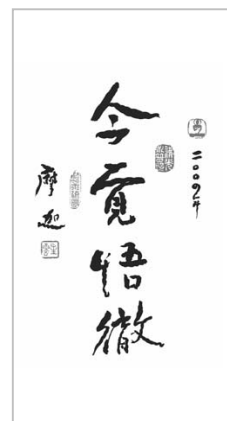 二〇〇九年
今覚悟徹
摩迦